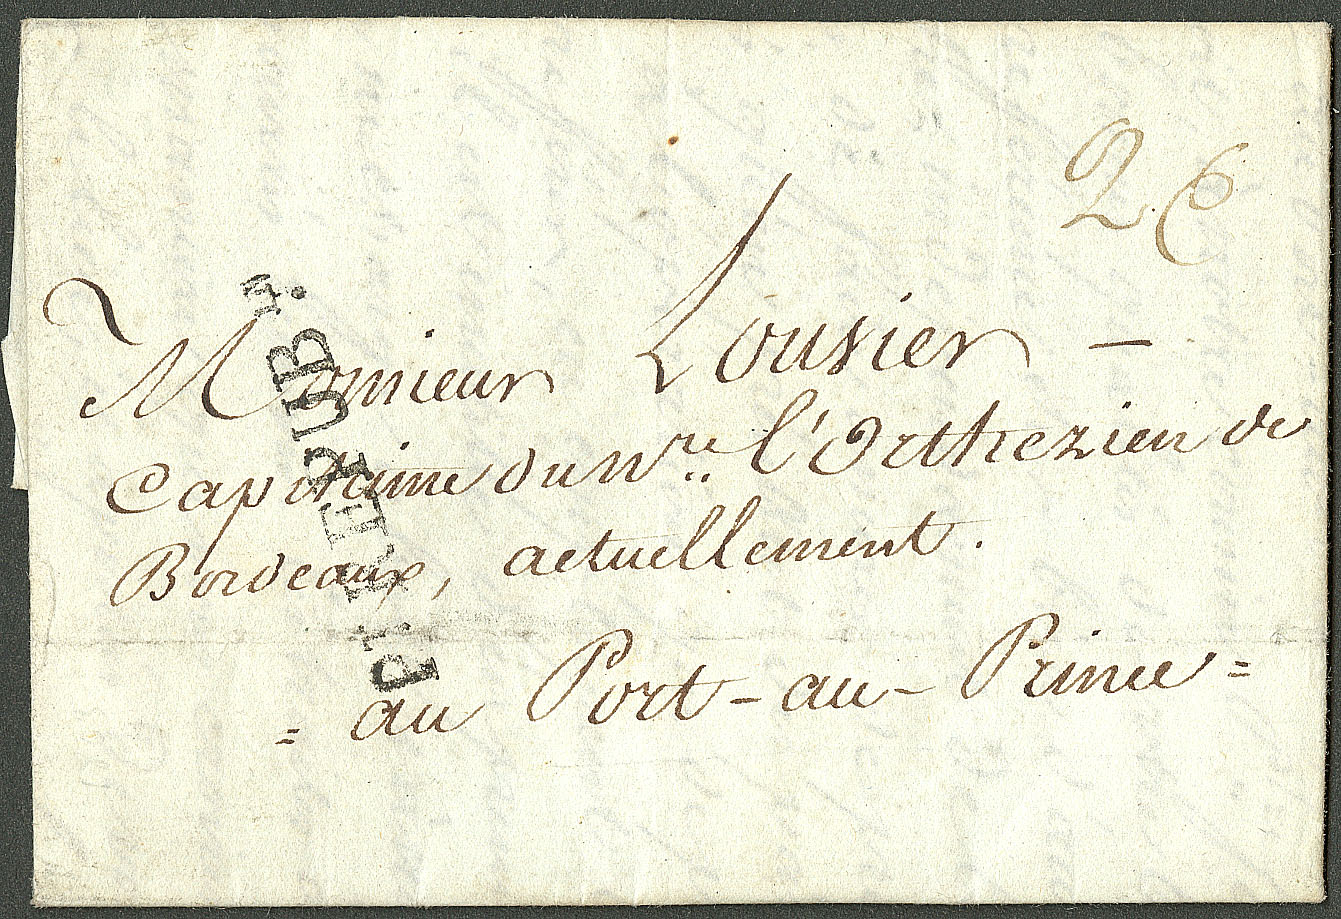 2.6
Monsieur Lousier —
Capitaine du N.re l'Orthezien de
Bordeaux, actuellement.
= au Port - au - Prince =
PT. REPUB IN.